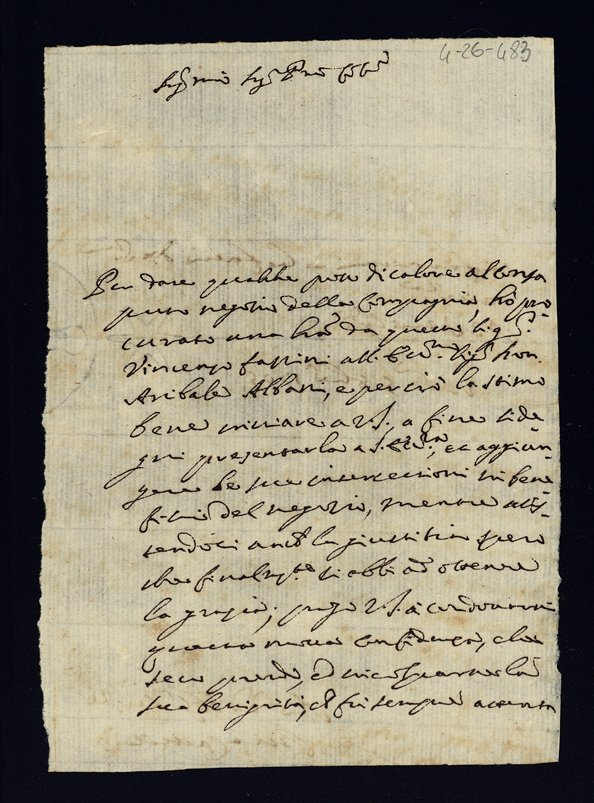 4-26-483
Sig.r mio Sig.r
Per dare qualche poco di calore al consa
puto negozio della Compagnia, hò pro
curato una da questo Sig.r
Vincenzo fassini all' Ecc.mo Sig.r Don
Anibale Albani, e perciò la stimo
bene inviare a V.S. a fine si de
gni presentarla a S. Ecc.za, et aggiun-
gere le sue intercessioni in bene
ficio del negozio, mentre assis-
tendoci anco la giustitia spero
che finalm.te si abbi ad ottenere
la grazia; prego V.S. à condonarmi
questa nuova confidenza, che
seco prendo, ed incolparne la
sua benignità, ch' fù sempre